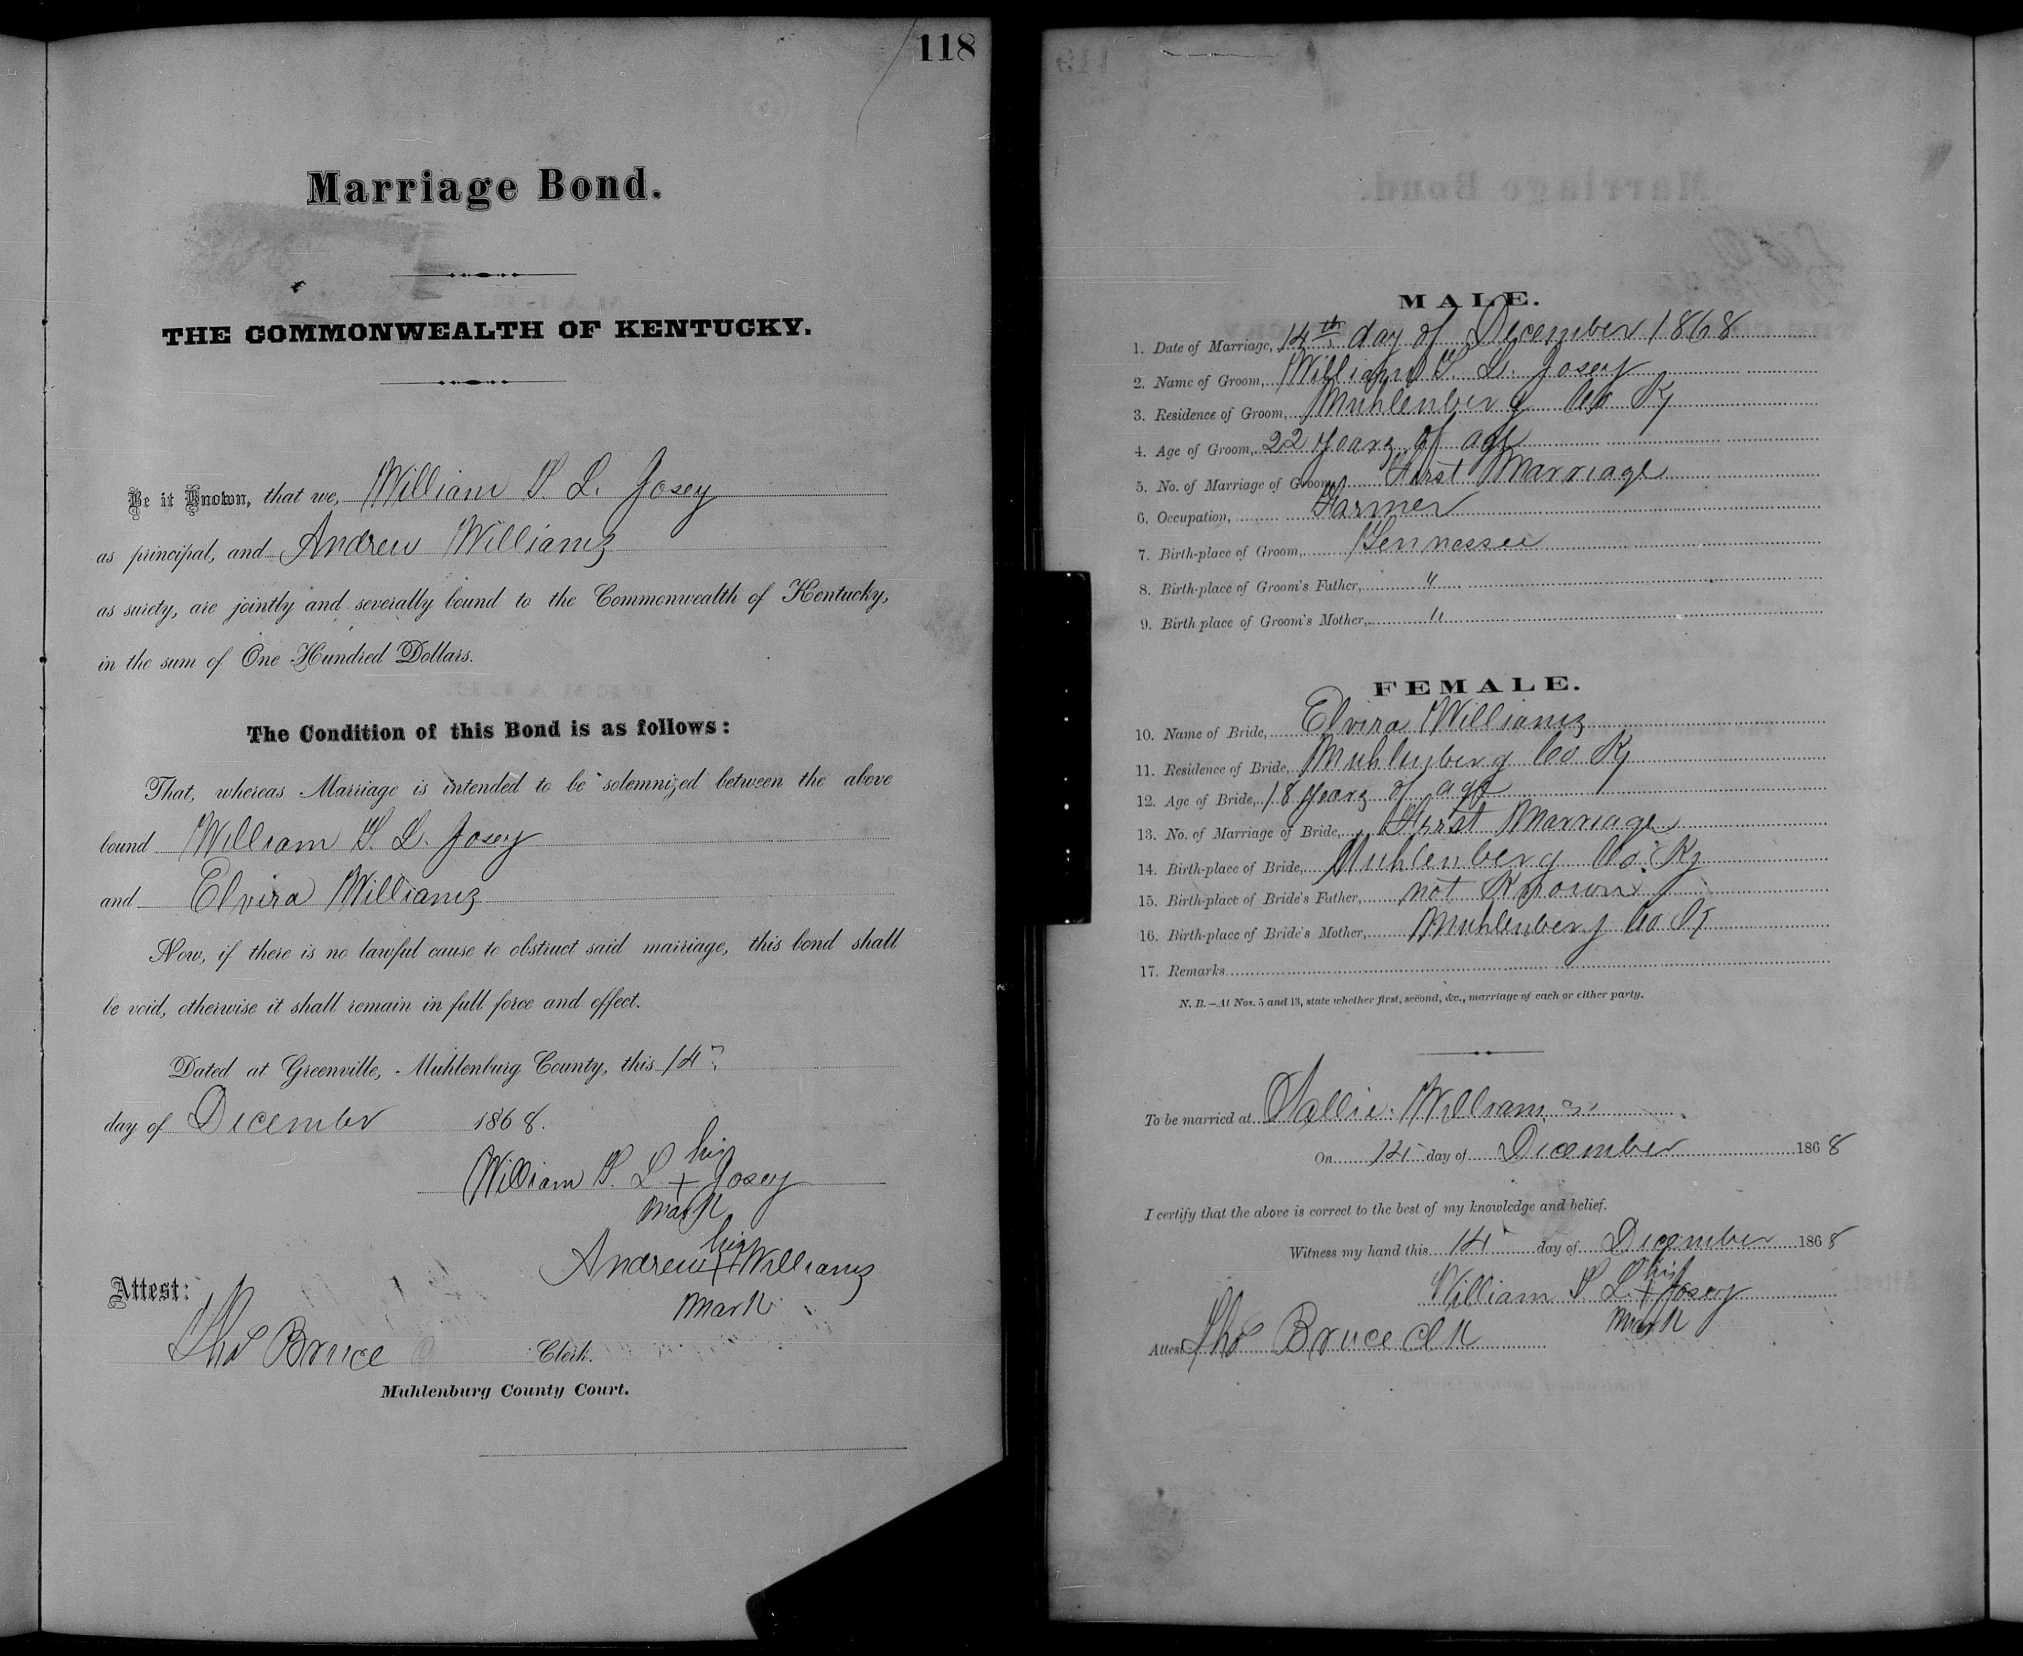 118
Marriage Bond.
THE COMMONWEALTH OF KENTUCKY.
Be it Known, that we, William S. L. Josey
as principal, and Andrew Williams
as surety, are jointly and severally bound to the Commonwealth of Kentucky,
in the sum of One Hundred Dollars.
The Condition of this Bond is as follows:
That, whereas Marriage is intended to be solemnized between the above
bound William S. L. Josey
and Elvira Williams
Now, if there is no lawful cause to obstruct said marriage, this bond shall
be void, otherwise it shall remain in full force and effect.
Dated at Greenville, Muhlenburg County, this 14
day of December 1868.
his
William S. L + Josey
mark
his
Andrew + Williams
mark
Attest:
Tho Bruce Clerk.
Muhlenburg County Court.
MALE.
1. Date of Marriage, 14th day of December 1868
2. Name of Groom, William S. L. Josey
3. Residence of Groom, Muhlenberg Co Ky
4. Age of Groom, 22 years of age
5. No. of Marriage of Groom, First Marriage
6. Occupation, Farmer
7. Birth-place of Groom, Tennessee
8. Birth-place of Groom's Father, "
9. Birth place of Groom's Mother, "
FEMALE.
10. Name of Bride, Elvira Williams
11. Residence of Bride, Muhlenberg Co Ky
12. Age of Bride, 18 years of age
13. No. of Marriage of Bride, First Marriage
14. Birth-place of Bride, Muhlenberg Co. Ky
15. Birth-place of Bride's Father, not Known
16. Birth-place of Bride's Mother, Muhlenberg Co Ky
17. Remarks
N. B.—At Nos. 5 and 13, state whether first, second, &c., marriage of each or either party.
To be married at Sallie Williams
On 14 day of December 1868
I certify that the above is correct to the best of my knowledge and belief.
Witness my hand this 14 day of December 1868
his
William S. L + Josey
mark
Attest Tho Bruce Clk